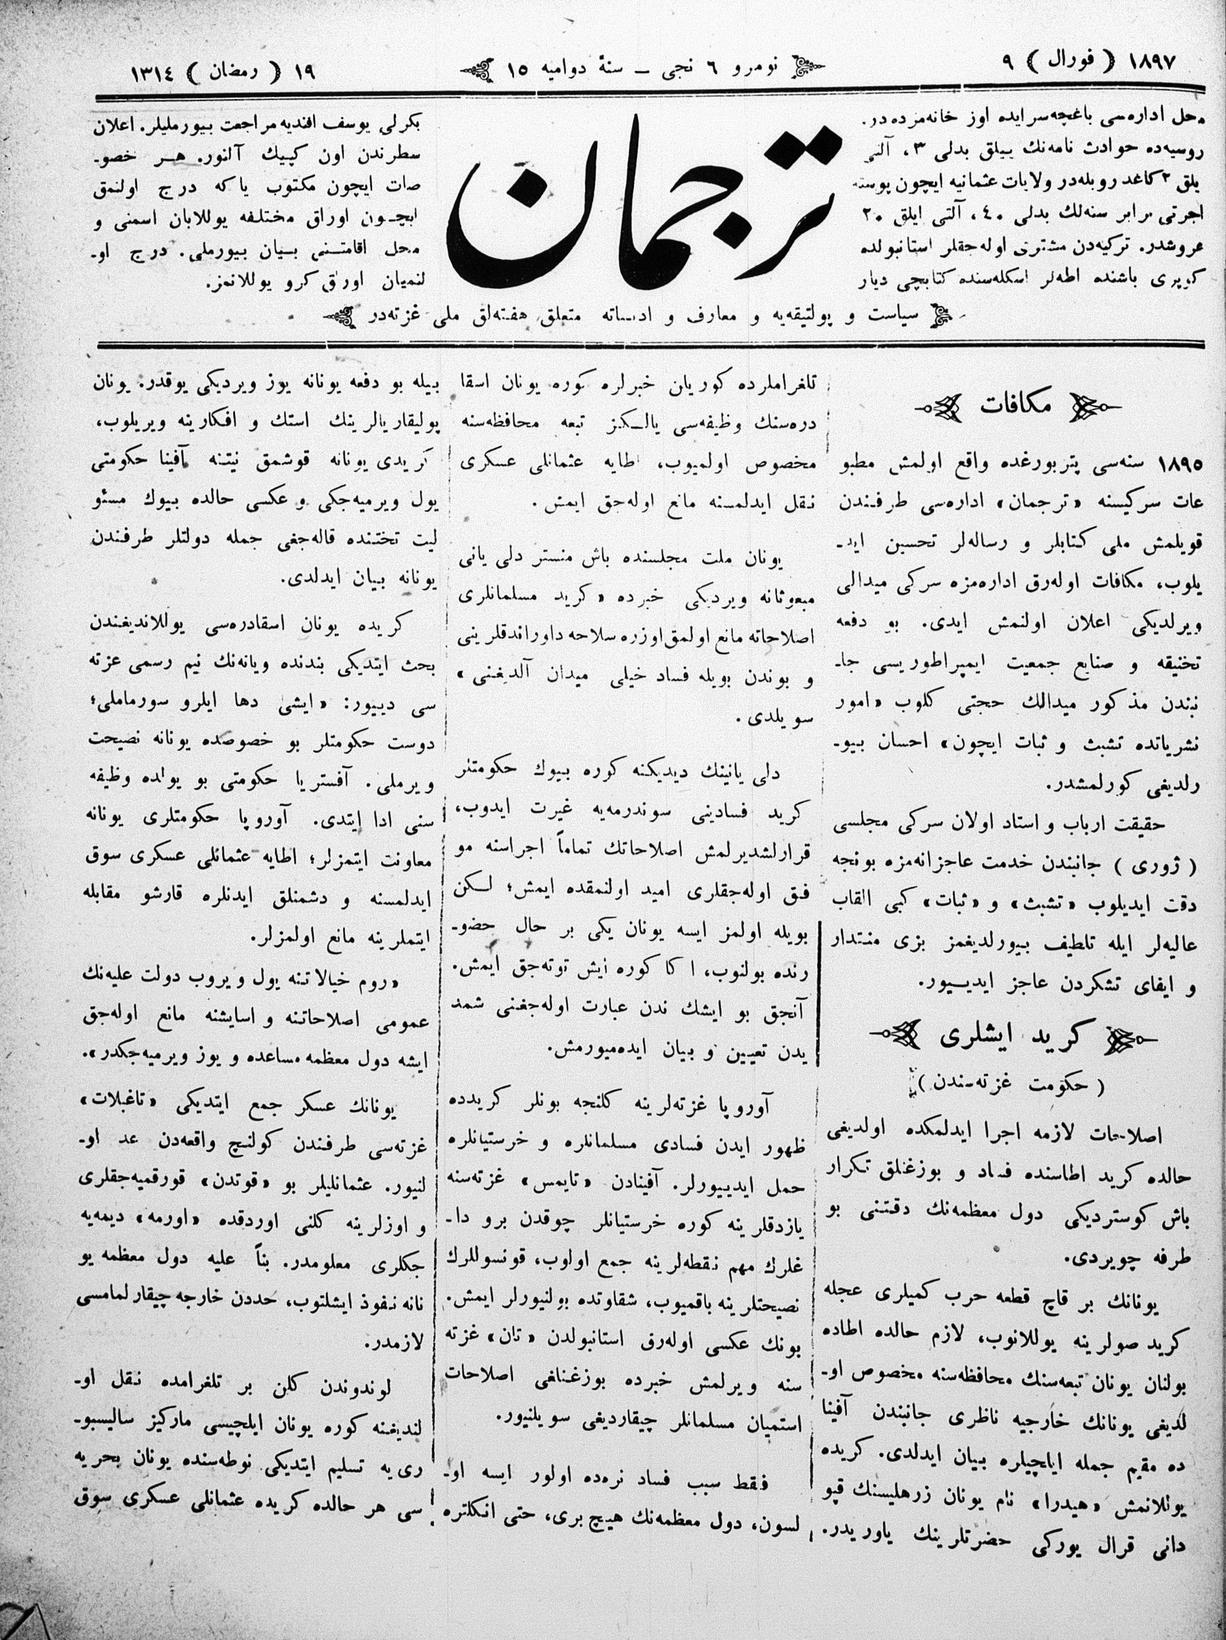 ١٨٩٧ ( فورال ) ٩
نومرو ٦ نجی ــ سنهٔ دوامیه ١٥
١٩ ( رمضان ) ١٣١٤
محل اداره‌سی باغچه‌سرایده اوز خانه‌مزده‌در.
روسیه‌ده حوادث نامه‌نك ییلق بدلی ٣، آلتی
یلق ٢ كاغد روبله‌در ولایات عثمانیه ایچون پوسته
اجرتی برابر سنه‌لك بدلی ٤٠، آلتی ایلق ٢٠
غروشدر. تركیه‌دن مشتری اوله‌جقلر استانبولده
كوپری باشنده اطه‌لر اسكله‌سنده كتابچی دیار
ترجمان
بكرلی یوسف افندیه مراجعت بیورملیلر. اعلان
سطرندن اون كپیك آلنور. هر خصو۔
صات ایچون مكتوب یا كه درج اولنمق
ایچون اوراق مختلفه یوللایان اسمنی و
محل اقامتنی بیان بیورملی. درج او۔
لنمیان اوراق كرو یوللانمز.
سیاست و پولتیقه‌یه و معارف و ادبیاته متعلق هفته‌لق ملی غزته‌در
مكافات
١٨٩٥ سنه‌سی پتربورغده واقع اولمش مطبو
عات سركیسنه «ترجمان» اداره‌سی طرفندن
قویلمش ملی كتابلر و رساله‌لر تحسین اید۔
یلوب، مكافات اوله‌رق اداره‌مزه سركی میدالی
ویرلدیكی اعلان اولنمش ایدی. بو دفعه
تخنیقه و صنایع جمعیت ایمپراطوریسی جا۔
نبندن مذكور میدالك حجتی كلوب «امور
نشریاتده تشبث و ثبات ایچون» احسان بیو۔
رلدیغی كورلمشدر.
حقیقت ارباب و استاد اولان سركی مجلسی
( ژوری ) جانبندن خدمت عاجزانه‌مزه بونجه
دقت ایدیلوب «تشبث» و «ثبات» كبی القاب
عالیه‌لر ایله تلطیف بیورلدیغمز بزی منتدار
و ایفای تشكردن عاجز ایدیــیور.
كرید ایشلری
( حكومت غزته‌سندن )
اصلاحات لازمه اجرا ایدلمكده اولدیغی
حالده كرید اطاسنده فساد و بوزغنلق تكرار
باش كوستردیكی دول معظمه‌نك دقتنی بو
طرفه چویردی.
یونانك بر قاچ قطعه حرب كمیلری عجله
كرید صولرینه یوللانوب، لازم حالده اطاده
بولنان یونان تبعه‌سنك محافظه‌سنه مخصوص او۔
لدیغی یونانك خارجیه ناظری جانبندن آفینا
ده مقیم جمله ایلچیلره بیان ایدلدی. كریده
یوللانمش «هیدرا» نام یونان زرهلیسنك قپو
دانی قرال یوركی حضرتلرینك یاوریدر.
تلغراملرده كوریان خبرلره كوره یونان اسقا
دره‌سنك وظیفه‌سی یالــكز تبعه محافظه‌سنه
مخصوص اولمیوب، اطایه عثمانلی عسكری
نقل ایدلمسنه مانع اوله‌جق ایمش.
یونان ملت مجلسنده باش منستر دلی یانی
مبعوثانه ویردیكی خبرده «كرید مسلمانلری
اصلاحاته مانع اولمق اوزره سلاحه داوراندقلرینی
و بوندن بویله فساد خیلی میدان آلدیغنی»
سویلدی.
دلی یانینك دیدیكنه كوره بیوك حكومتلر
كرید فسادینی سوندرمه‌یه غیرت ایدوب،
قرارلشدیرلمش اصلاحاتك تماماً اجراسنه مو
فق اوله‌جقلری امید اولنمقده ایمش؛ لــكن
بویله اولمز ایسه یونان یكی بر حال حضو۔
رنده بولنوب، اكا كوره ایش توته‌جق ایمش.
آنجق بو ایشك ندن عبارت اوله‌جغنی شمد
یدن تعیین و بیان ایده‌میورمش.
آوروپا غزته‌لرینه كلنجه بونلر كریدده
ظهور ایدن فسادی مسلمانلره و خرستیانلره
حمل ایدییورلر. آفینادن «تایمس» غزته‌سنه
یازدقلرینه كوره خرستیانلر چوقدن برو دا۔
غلرك مهم نقطه‌لرینه جمع اولوب، قونسوللرك
نصیحتلرینه باقمیوب، شقاوتده بولنیورلر ایمش.
بونك عكسی اوله‌رق استانبولدن «تان» غزته
سنه ویرلمش خبرده بوزغنلغی اصلاحات
استمیان مسلمانلر چیقاردیغی سویلنیور.
فقط سبب فساد نره‌ده اولور ایسه او۔
لسون، دول معظمه‌نك هیچ بری، حتی انكلتره
بیله بو دفعه یونانه یوز ویردیكی یوقدر. یونان
پولیقاریالرینك استك و افكارینه ویریلوب،
كریدی یونانه قوشمق نیتنه آفینا حكومتی
یول ویرمیه‌جكی و عكسی حالده بیوك مسئو
لیت تختنده قاله‌جغی جمله دولتلر طرفندن
یونانه بیان ایدلدی.
كریده یونان اسقادره‌سی یوللاندیغندن
بحث ایتدیكی بندنده ویانه‌نك نیم رسمی غزته
سی دییور: «ایشی دها ایلرو سورماملی؛
دوست حكومتلر بو خصوصده یونانه نصیحت
ویرملی. آفستریا حكومتی بو یولده وظیفه
سنی ادا ایتدی. آوروپا حكومتلری یونانه
معاونت ایتمزلر؛ اطایه عثمانلی عسكری سوق
ایدلمسنه و دشمنلق ایدنلره قارشو مقابله
ایتملرینه مانع اولمزلر.
«روم خیالاتنه یول ویروب دولت علیه‌نك
عمومی اصلاحاتنه و اسایشنه مانع اوله‌جق
ایشه دول معظمه مساعده و یوز ویرمیه‌جكدر».
یونانك عسكر جمع ایتدیكی «تاغبلات»
غزته‌سی طرفندن كولنچ واقعه‌دن عد او۔
لنیور. عثمانلیلر بو «قوتدن» قورقمیه‌جقلری
و اوزلرینه كلنی اوردقده «اورمه» دیمه‌یه
جكلری معلومدر. بنأ علیه دول معظمه یو
نانه نفوذ ایشلتوب، حددن خارجه چیقارلمامسی
لازمدر.
لوندوندن كلن بر تلغرامده نقل او۔
لندیغنه كوره یونان ایلچیسی ماركیز سالیسبو۔
ری‌یه تسلیم ایتدیكی نوطه‌سنده یونان بحریه
سی هر حالده كریده عثمانلی عسكری سوق